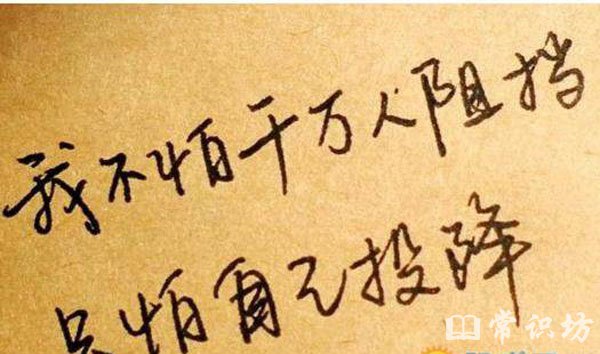 我不怕千万人阻挡
只怕自己投降
常识坊